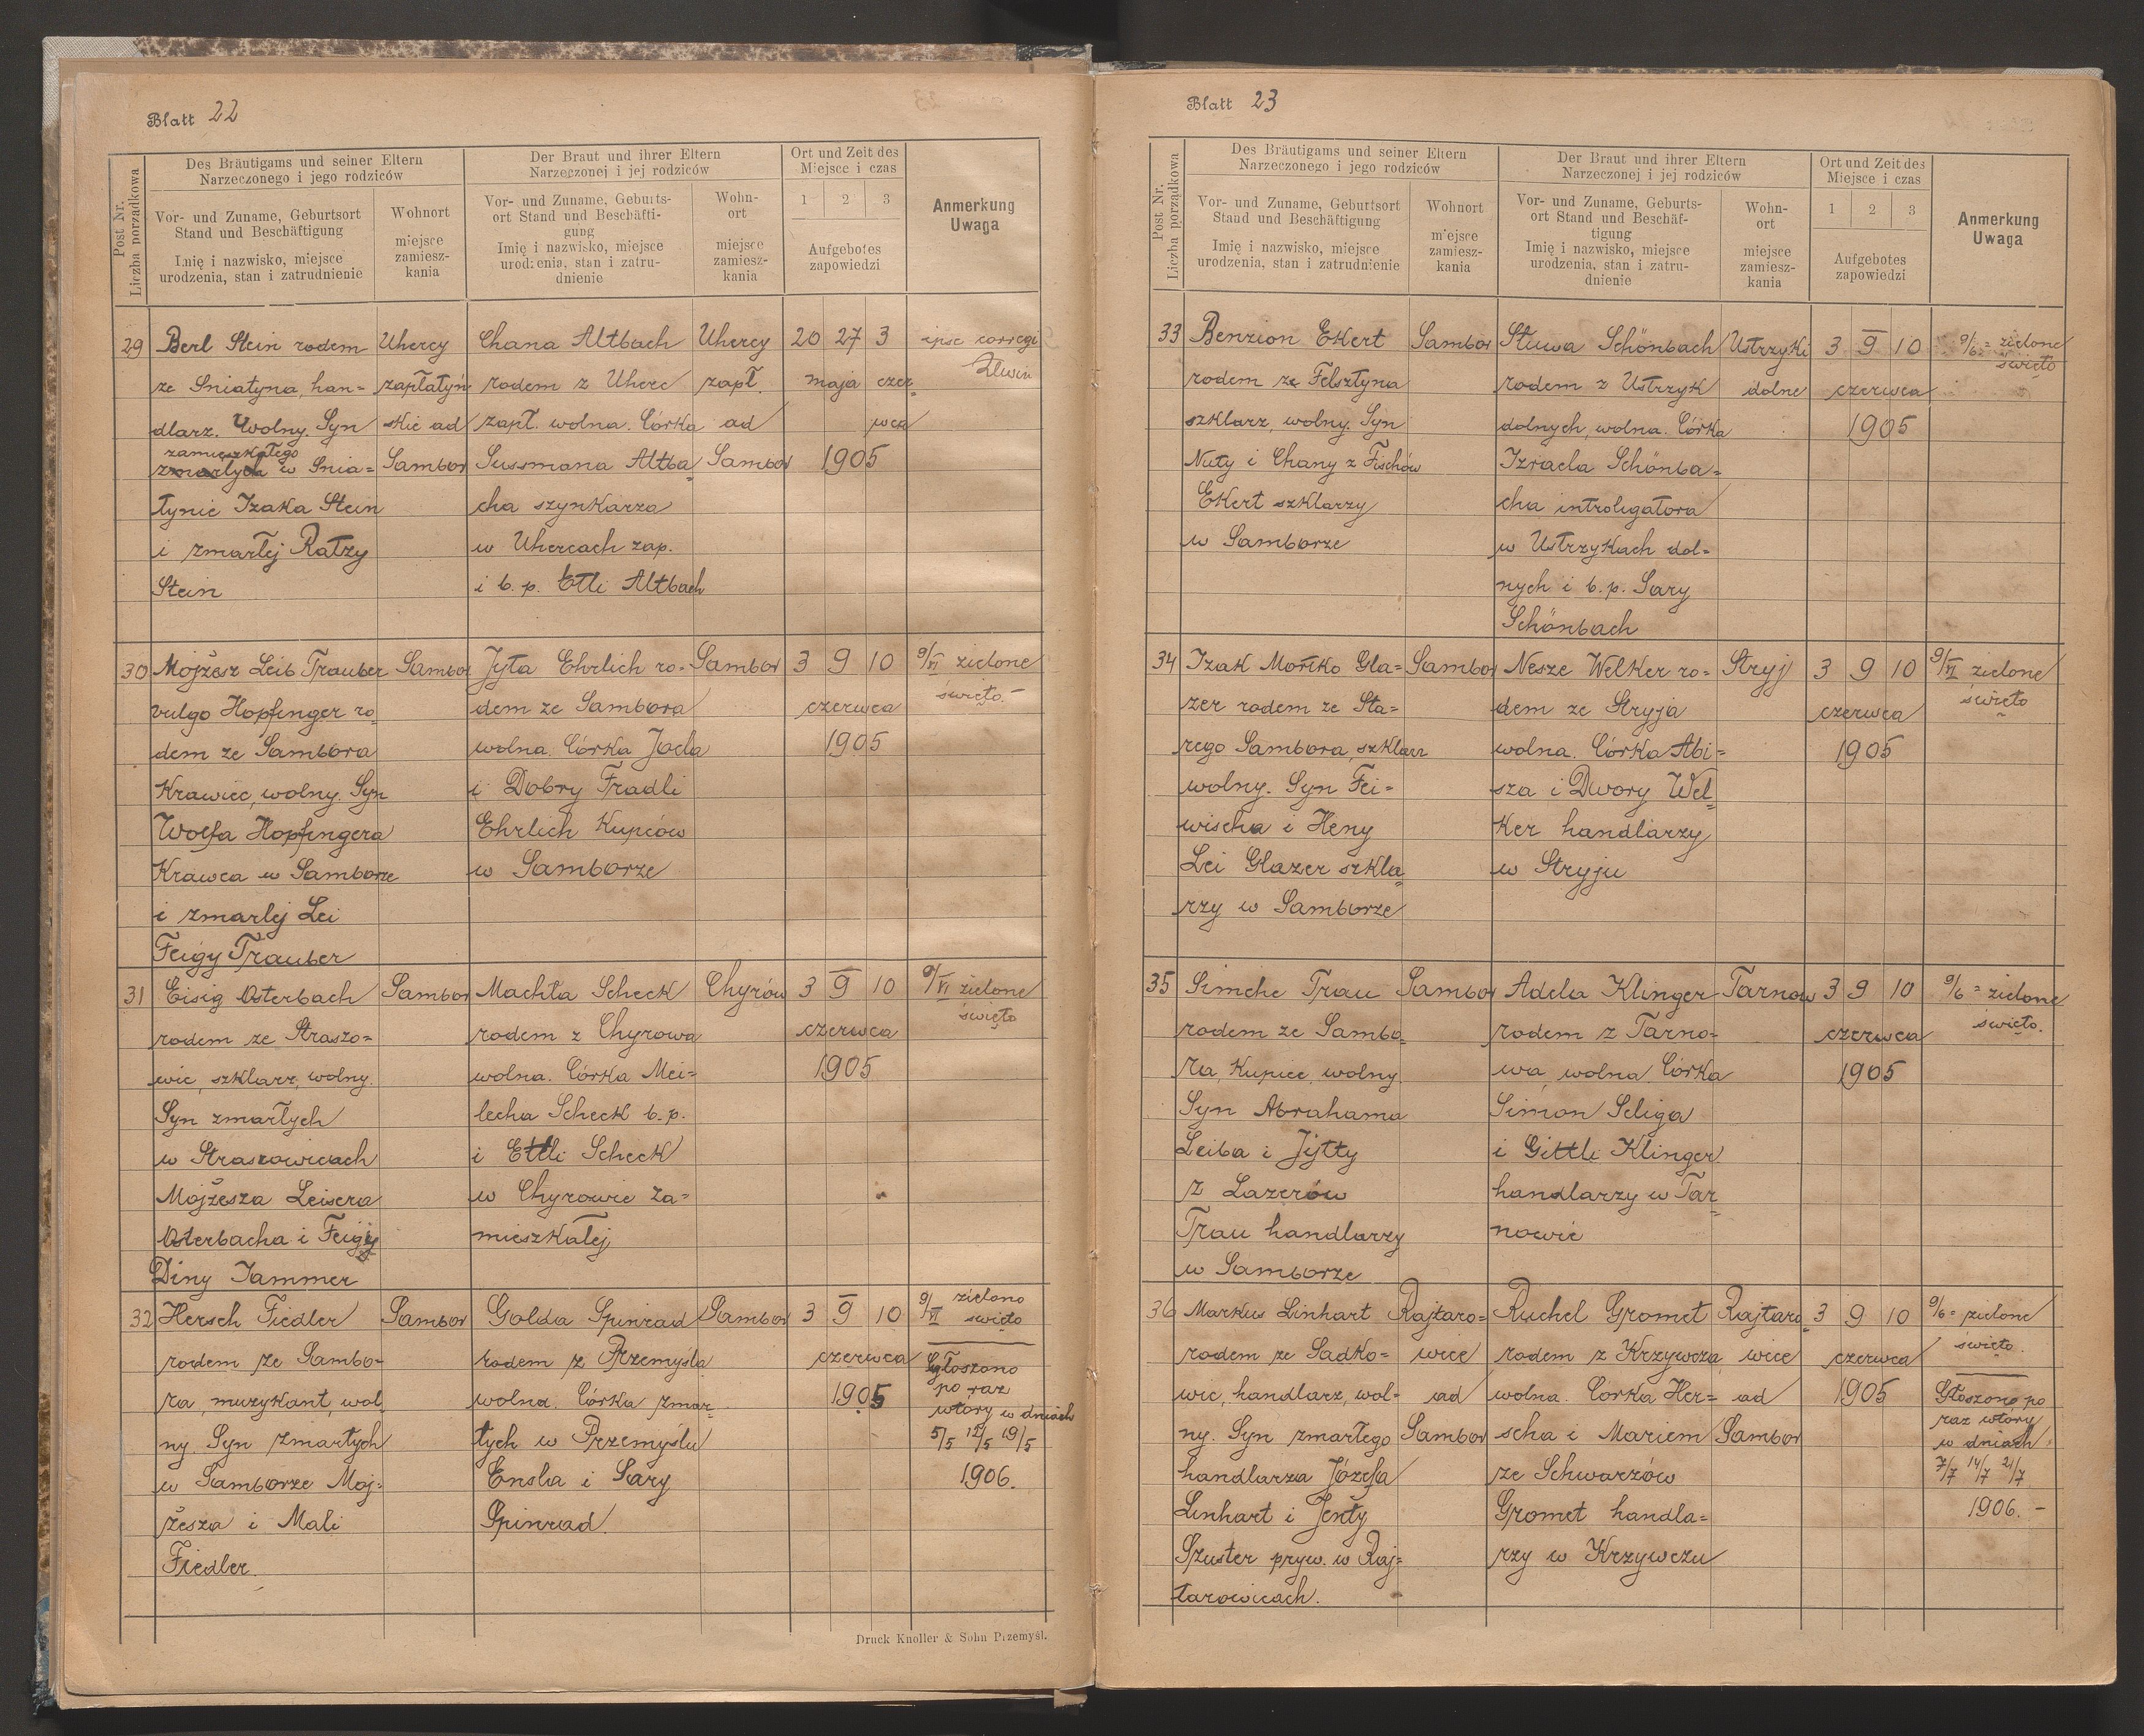 Blatt 22
Post Nr.
Liczba porządkowa
Des Bräutigams und seiner Eltern
Narzeczonego i jego rodziców
Der Braut und ihrer Eltern
Narzeczonej i jej rodziców
Ort und Zeit des
Miejsce i czas
Anmerkung
Uwaga
Vor- und Zuname, Geburtsort
Stand und Beschäftigung
Imię i nazwisko, miejsce
urodzenia, stan i zatrudnienie
Wohnort
miejsce
zamiesz-
kania
Vor- und Zuname, Geburts-
ort Stand und Beschäfti-
gung
Imię i nazwisko, miejsce
urodzenia, stan i zatru-
dnienie
Wohn-
ort
miejsce
zamiesz-
kania
1 2 3
Aufgebotes
zapowiedzi
29 Berl Stein rodem Uhercy Chana Altbach Uhercy 20 27 3 ipse corregi
ze Sniatyna, han- zapłatyń rodem z Uherc zapł. maja czer-
dlarz. Wolny. Syn skie ad zapł. wolna. Córka ad wca
zamieszkałego
zmarłych w Snia= Sambor Sussmana Altba= Sambor 1905
tynie Izaka Stein cha szynkarza
i zmarłej Ratzy w Uhercach zap.
Stein i b. p. Etli Altbach
30 Mojżesz Leib Trauber Sambor Jyta Ehrlich ro- Sambor 3 9 10 9/VI zielone
vulgo Hopfinger ro- dem ze Sambora czerwca święto.-
dem ze Sambora wolna. Córka Joela 1905
Krawiec, wolny. Syn i Dobry Fradli
Wolfa Hopfingera Ehrlich Kupców
Krawca w Samborze w Samborze
i zmarłej Lei
Feigy Trauber
31 Eisig Osterbach Sambor Machta Scheck Chyrów 3 9 10 9/VI zielone
rodem ze Straszo= rodem z Chyrowa czerwca święto
wic, szklarz, wolny. wolna. Córka Mei= 1905
Syn zmarłych lecha Scheck b. p.
w Straszowicach i Ettli Scheck
Mojżesza Leisera w Chyrowie za=
Osterbacha i Feigy mieszkałej
Diny Jammer
32 Hersch Fiedler Sambor Golda Spinrad Sambor 3 9 10 9/VI zielono święto
rodem ze Sambo- rodem z Przemyśla czerwca Ogłoszono
ra, muzykant, wol- wolna. Córka zmar- 1905 po raz
wtóry w dniach
ny. Syn zmarłych łych w Przemyślu 5/5 12/5 19/5
w Samborze Moj- Ensla i Sary 1906.
żesza i Mali Spinrad.
Fiedler.
Druck Knoller & Sohn Przemyśl.
Blatt 23
Post Nr.
Liczba porządkowa
Des Bräutigams und seiner Eltern
Narzeczonego i jego rodziców
Der Braut und ihrer Eltern
Narzeczonej i jej rodziców
Ort und Zeit des
Miejsce i czas
Anmerkung
Uwaga
Vor- und Zuname, Geburtsort
Stand und Beschäftigung
Imię i nazwisko, miejsce
urodzenia, stan i zatrudnienie
Wohnort
miejsce
zamiesz-
kania
Vor- und Zuname, Geburts-
ort Stand und Beschäf-
tigung
Imię i nazwisko, miejsce
urodzenia, stan i zatru-
dnienie
Wohn-
ort
miejsce
zamiesz-
kania
1 2 3
Aufgebotes
zapowiedzi
33 Benzion Ekert Sambor Sluwa Schönbach Ustrzyki 3 9 10 9/6 = zielone święto
rodem ze Felsztyna rodem z Ustrzyk dolne czerwca
szklarz, wolny. Syn dolnych, wolna. Córka 1905
Nuty i Chany z Fischów Izraela Schönba=
Ekert szklarzy cha introligatora
w Samborze w Ustrzykach dol=
nych i b. p. Sary
Schönbach
34 Izak Mortko Gla= Sambor Nesze Welker ro- Stryj 3 9 10 9/VI zielone
zer rodem ze Sta= dem ze Stryja czerwca święto
rego Sambora, szklarz wolna. Córka Abi= 1905
wolny. Syn Fei= sza i Dwory Wel=
wischa i Heny ker handlarzy
Lei Glazer szkla= w Stryju
rzy w Samborze
35 Simche Trau Sambor Adela Klinger Tarnow 3 9 10 9/6 = zielone
rodem ze Sambo= rodem z Tarno= czerwca święto.
ra, Kupiec, wolny. wa, wolna. Córka 1905
Syn Abrahama Simon Seliga
Leiba i Jytty i Gittli Klinger
z Lazerów handlarzy w Tar=
Trau handlarzy nowie
w Samborze
36 Markus Linhart Rajtaro= Ruchel Gromet Rajtaro= 3 9 10 9/6 = zielone
rodem ze Sadko= wice rodem z Krzywcza wice czerwca święto.
wic, handlarz, wol- ad wolna. Córka Her= ad 1905 Głoszono po
raz wtóry
ny. Syn zmarłego Sambor scha i Mariem Sambor w dniach
handlarza Józefa ze Schwarzów 7/7 14/7 21/7
Linhart i Jenty Gromet handla= 1906. -
Szuster pryw. w Raj= rzy w Krzywczu
tarowicach.